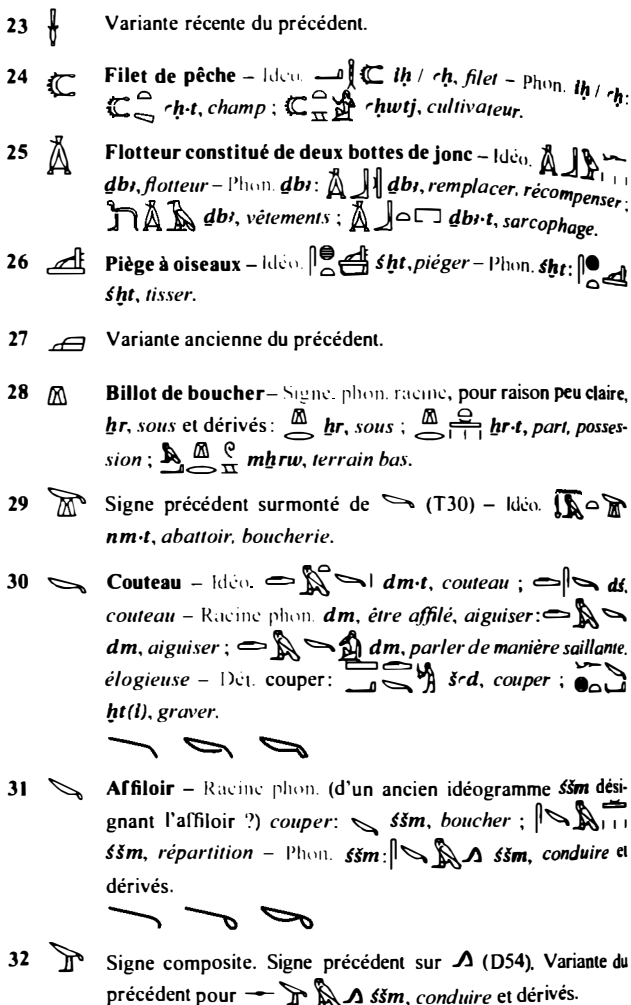 23 Variante récente du précédent.
24 Filet de pêche – Idéo. iḥ / ꜥḥ, filet – Phon. iḥ / ꜥḥ:
ꜥḥ·t, champ ; ꜥḥwtj, cultivateur.
25 Flotteur constitué de deux bottes de jonc – Idéo.
ḏbꜣ, flotteur – Phon. ḏbꜣ: ḏbꜣ, remplacer, récompenser ;
ḏbꜣ, vêtements ; ḏbꜣ·t, sarcophage.
26 Piège à oiseaux – Idéo. śḫt, piéger – Phon. śḫt:
śḫt, tisser.
27 Variante ancienne du précédent.
28 Billot de boucher – Signe. phon. racine, pour raison peu claire,
ẖr, sous et dérivés: ẖr, sous ; ẖr·t, part, posses-
sion ; mẖrw, terrain bas.
29 Signe précédent surmonté de (T30) – Idéo.
nm·t, abattoir, boucherie.
30 Couteau – Idéo. dm·t, couteau ; dś,
couteau – Racine phon. dm, être affilé, aiguiser:
dm, aiguiser ; dm, parler de manière saillante,
élogieuse – Dét. couper: šꜥd, couper ;
ḫt(i), graver.
31 Affiloir – Racine phon. (d'un ancien idéogramme śšm dési-
gnant l'affiloir ?) couper: śšm, boucher ;
śšm, répartition – Phon. śšm: śšm, conduire et
dérivés.
32 Signe composite. Signe précédent sur (D54). Variante du
précédent pour śšm, conduire et dérivés.